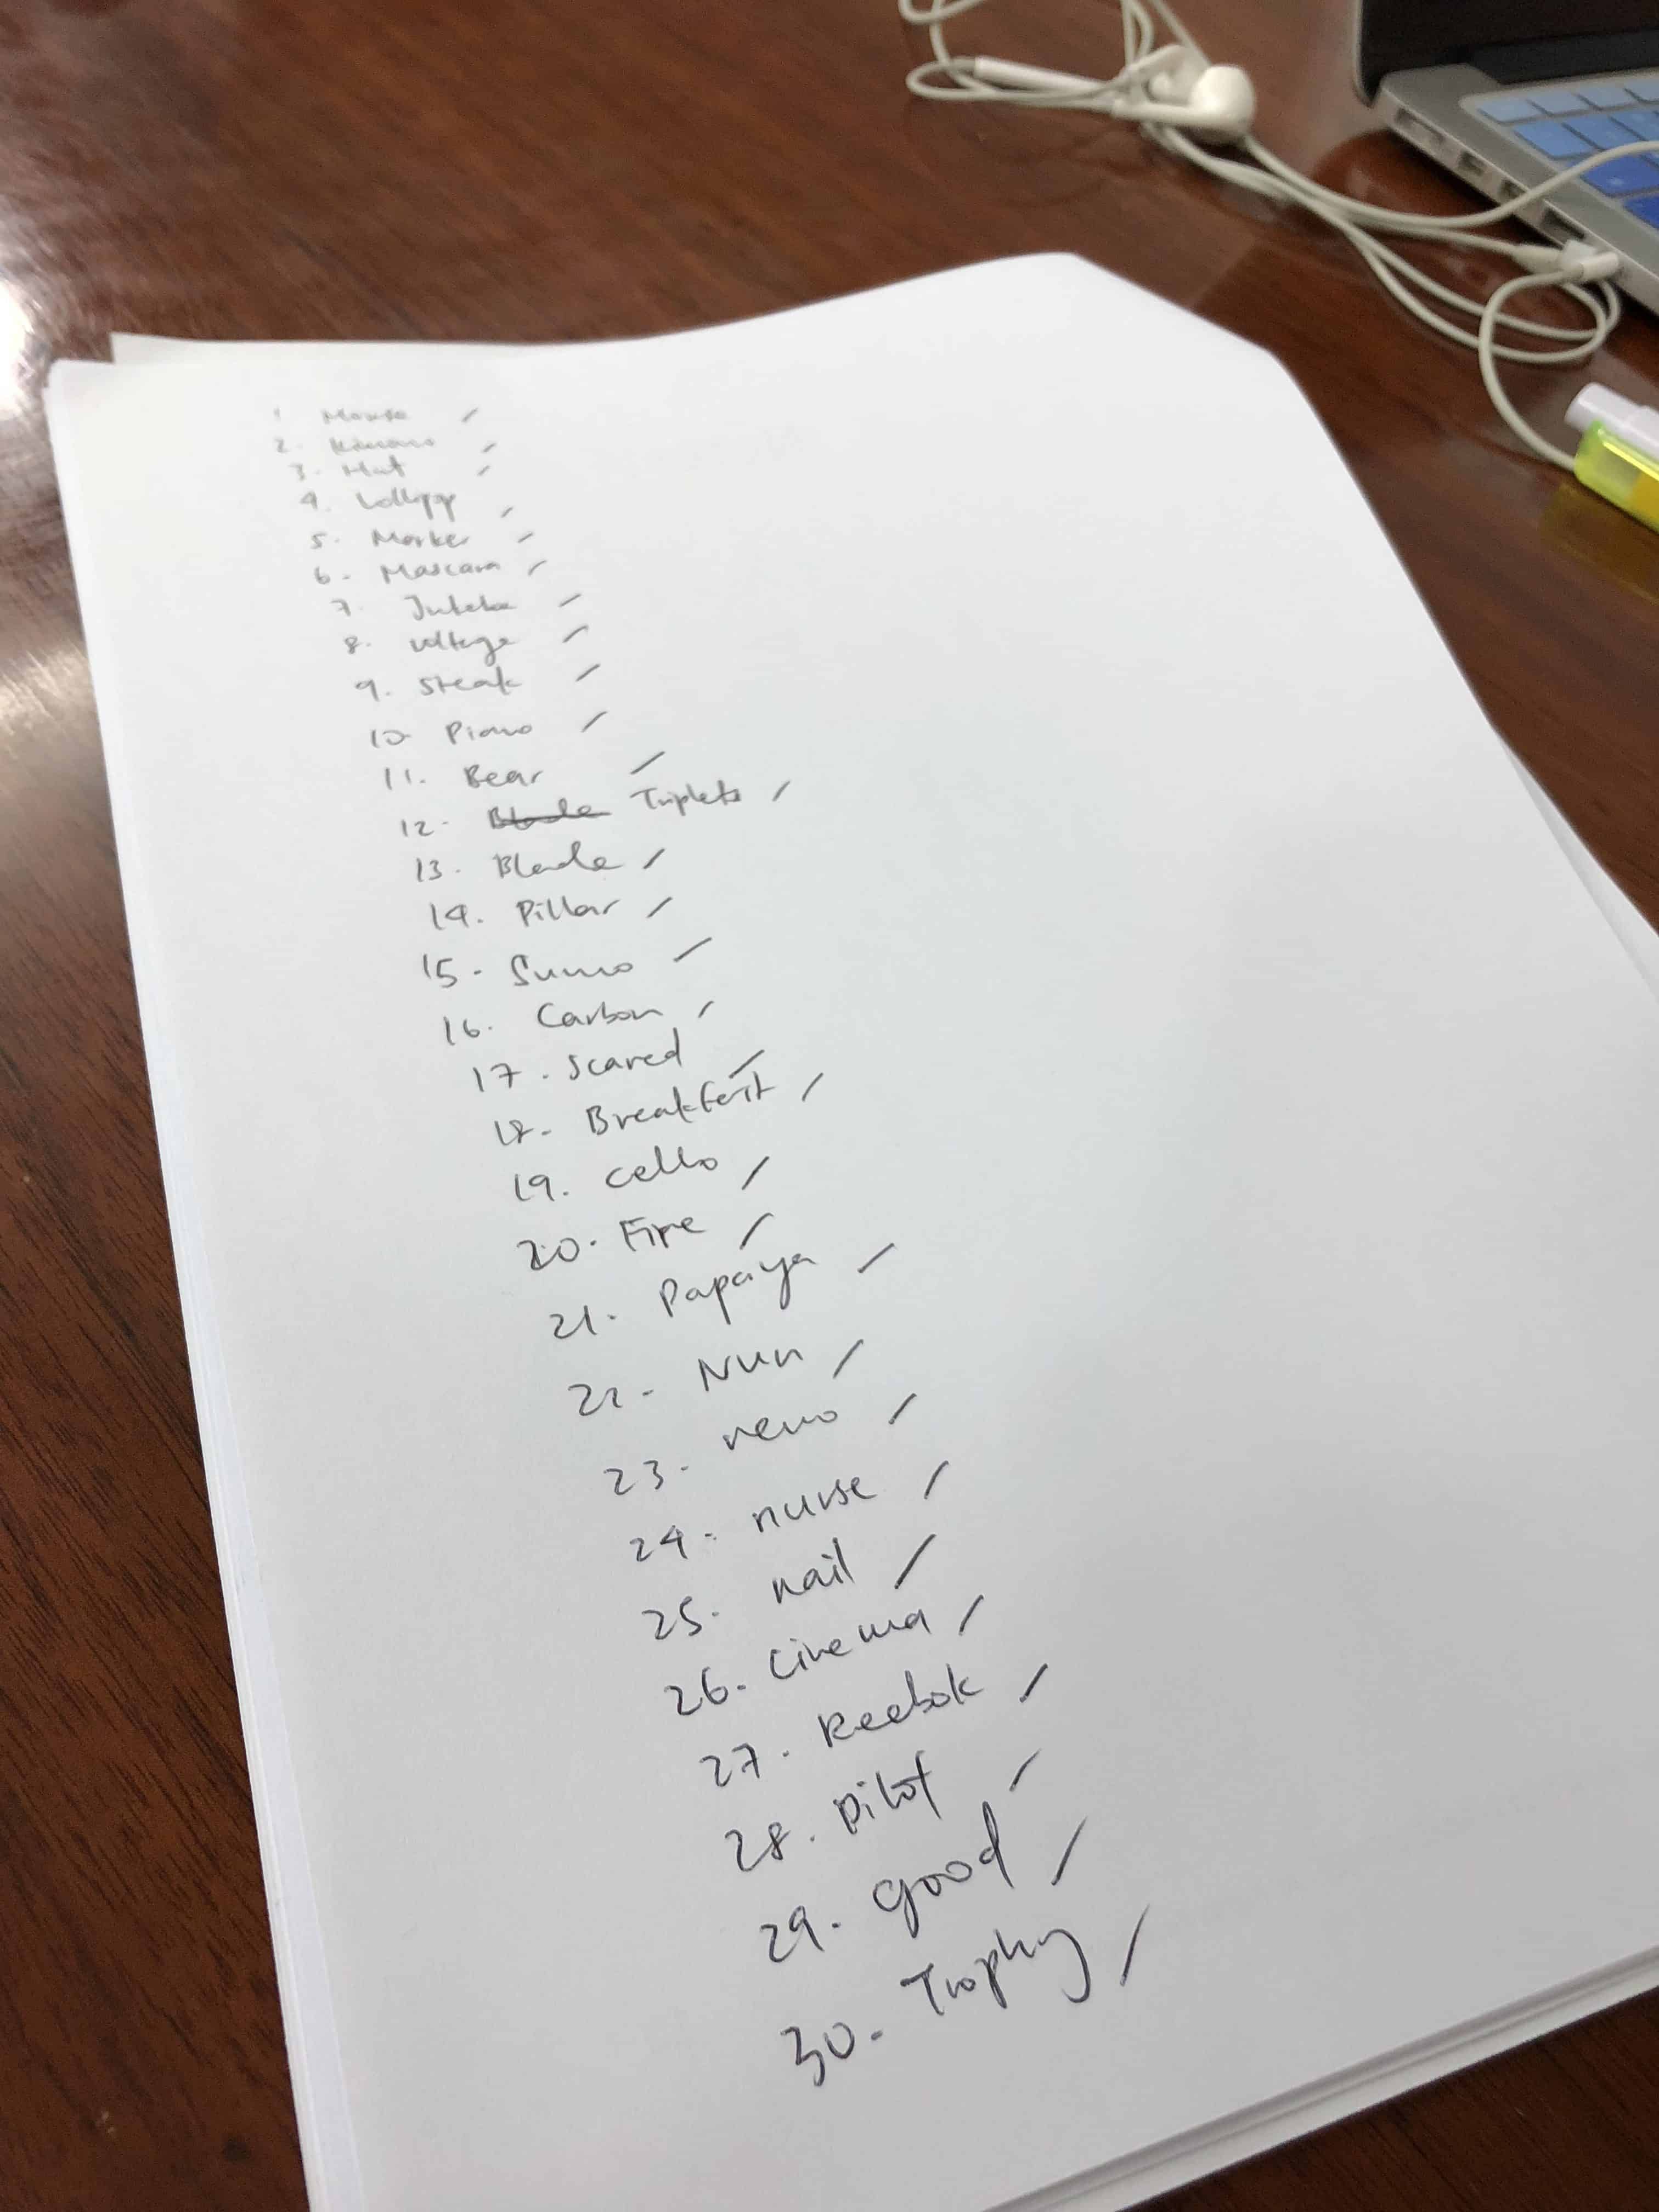 1 Mouse
2. Kimono
3. Hat
4. Lollipop
5. Marker
6. Mascara
7.
8. Voltage
9. Steak
10 Piano
11. Bear
12. Blade Triplets
13. Blade
14. Pillar
15. Sumo
16. Carbon
17. Scared
18. Breakfast
19. Cello
20. Fire
21. Papaya
22. Nun
23. nemo
24. nurse
25. nail
26. Cinema
27. Reebok
28. Pilot
29. good
30. Trophy